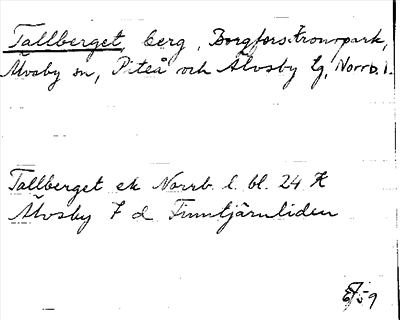 Tallberget, berg, Borgfors kronopark,
Älvsby sn, Piteå och Älvsby tg, Norrb. l.
Tallberget ek Norrb. l. bl. 24
Älvsby 7 d Finntjärnliden